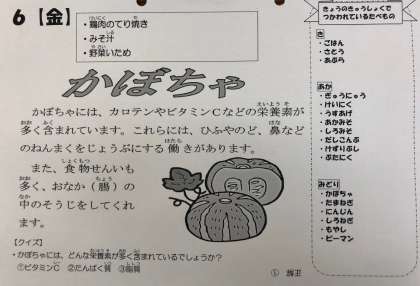 6【金】
・鶏肉のてり焼き
・みそ汁
・野菜いため
かぼちゃ
かぼちゃには、カロテンやビタミンCなどの栄養素が
多く含まれています。これらには、ひふやのど、鼻など
のねんまくをじょうぶにする働きがあります。
また、食物せんいも
多く、おなか(腸)の
中のそうじをしてくれ
ます。
【クイズ】
・かぼちゃには、どんな栄養素が多く含まれているでしょうか?
①ビタミンC ②たんぱく質 ③脂質
きょうのきゅうしょくで
つかわれているたべもの
き
・ごはん
・さとう
・あぶら
あか
・ぎゅうにゅう
・けいにく
・うすあげ
・あかみそ
・しろみそ
・だしこんぶ
・けずりぶし
・ぶたにく
みどり
・かぼちゃ
・たまねぎ
・にんじん
・しろねぎ
・もやし
・ピーマン